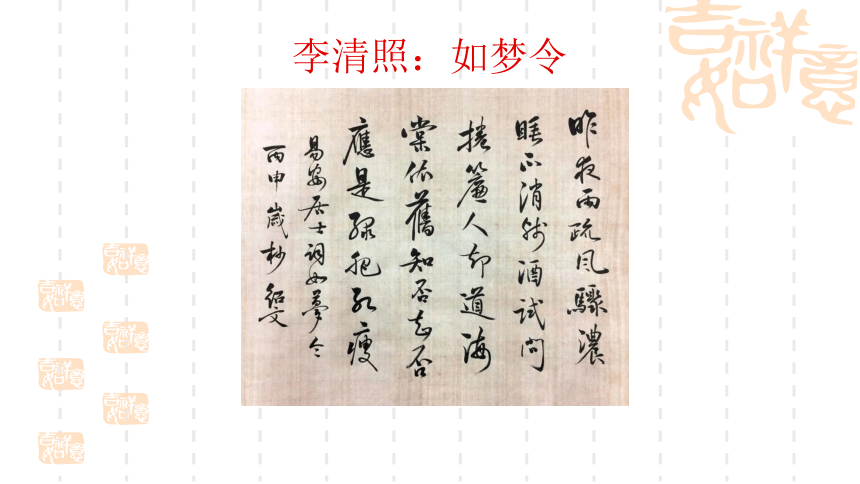 李清照：如梦令
吉祥如意
昨夜雨疏风骤濃
睡不消残酒试问
捲簾人却道海
棠依舊知否知否
應是绿肥红瘦
易安居士词如夢令
丙申歲杪
吉祥如意
吉祥如意
吉祥如意
吉祥如意
吉祥如意
吉祥如意